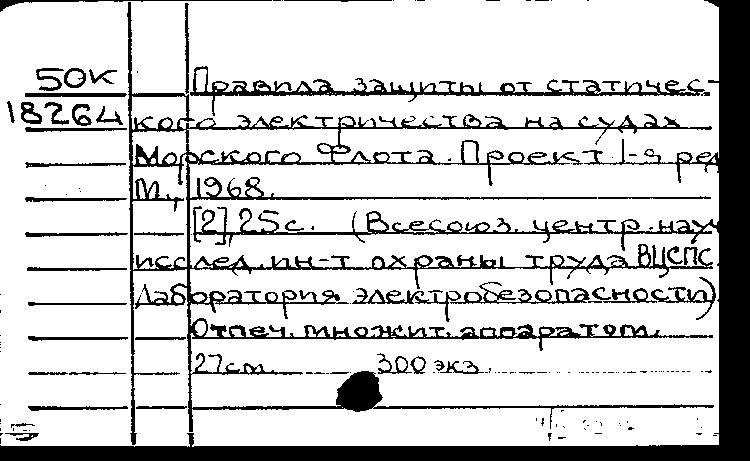 50К Правила защиты от статичес-
18264 кого электричества на судах
Морского Флота. Проект 1-я ред
М., 1968.
[2], 25с. (Всесоюз. центр. науч
исслед. ин-т охраны труда ВЦСПС.
Лаборатория электробезопасности)
Отпеч. множит. аппаратом.
27см. 300 экз.